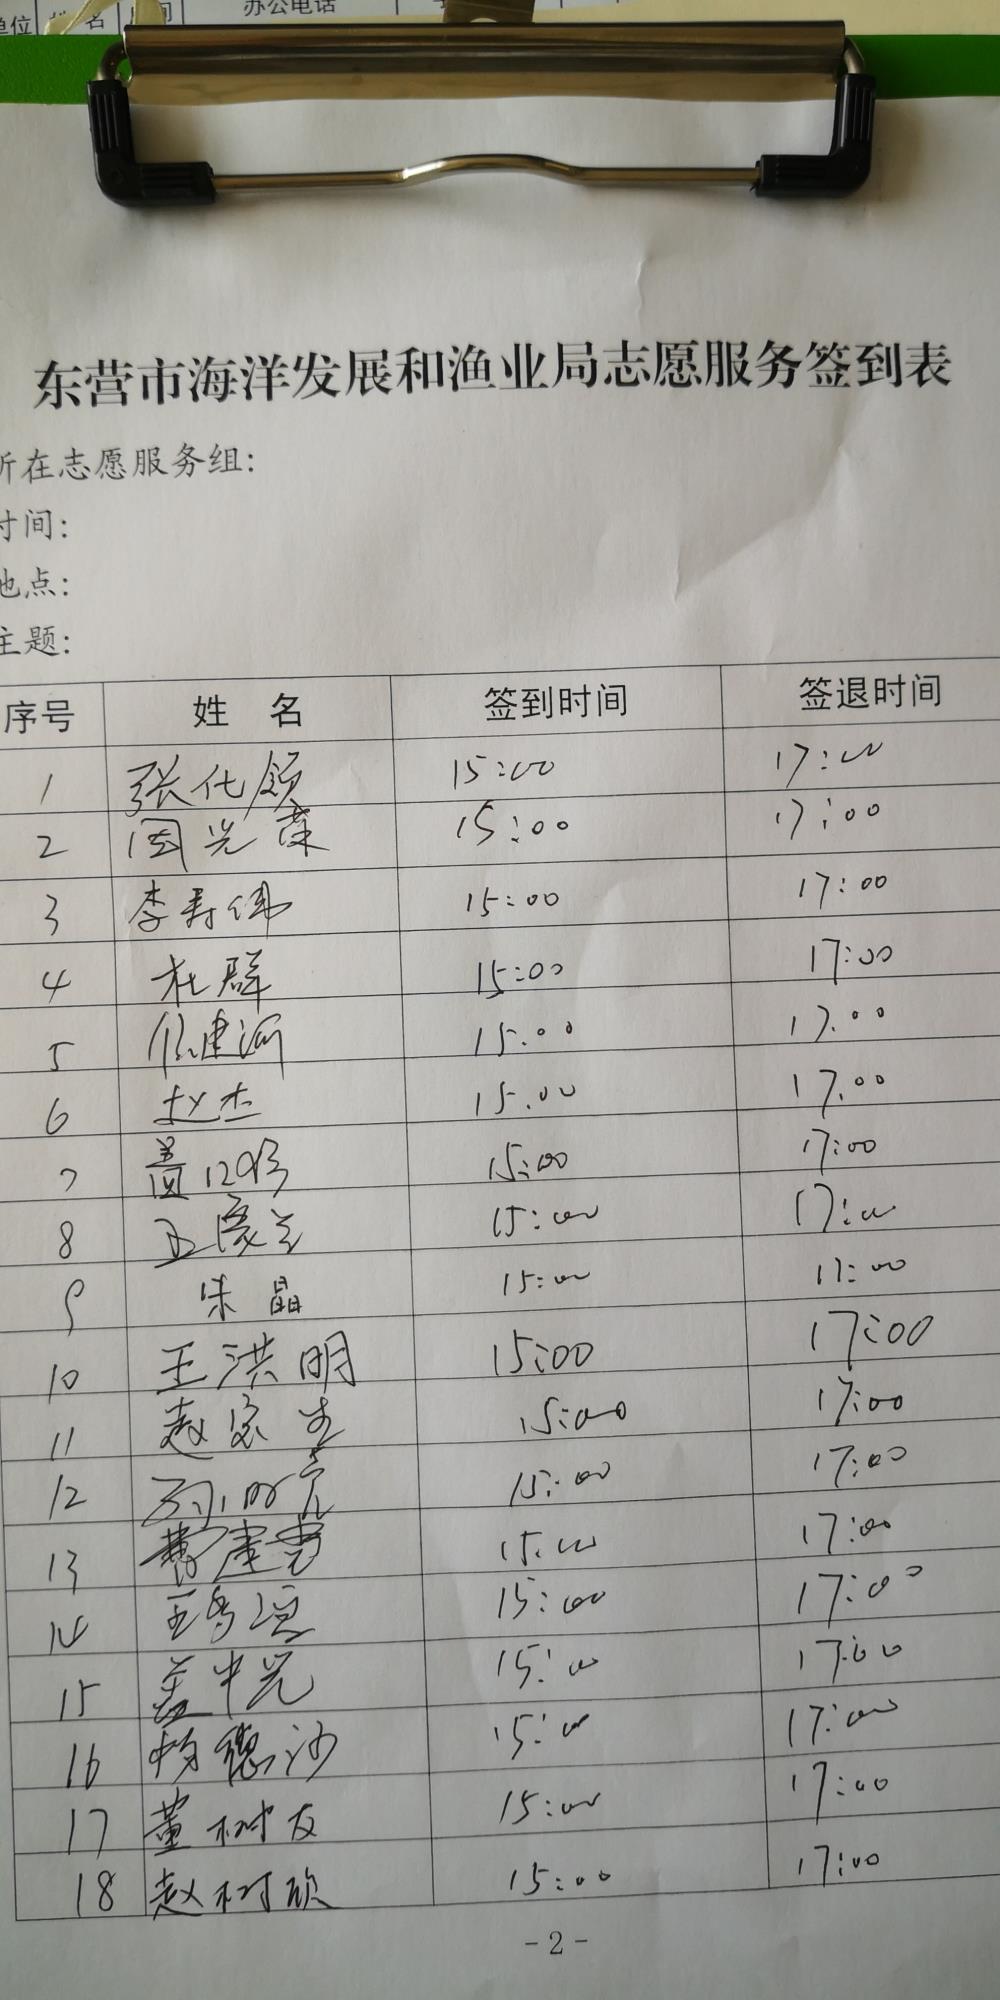 单位 姓 名 办公电话
东营市海洋发展和渔业局志愿服务签到表
所在志愿服务组:
时间:
地点:
主题:
序号 姓 名 签到时间 签退时间
1 张化领 15:00 17:00
2 国光荣 15:00 17:00
3 李寿伟 15:00 17:00
4 杜群 15:00 17:00
5 建河 15:00 17:00
6 赵杰 15:00 17:00
7 盖 15:00 17:00
8 15:00 17:00
9 朱晶 15:00 17:00
10 王洪明 15:00 17:00
11 赵宏生 15:00 17:00
12 15:00 17:00
13 15:00 17:00
14 王 15:00 17:00
15 盖中光 15:00 17:00
16 杨德沙 15:00 17:00
17 董树友 15:00 17:00
18 赵树欣 15:00 17:00
-2-